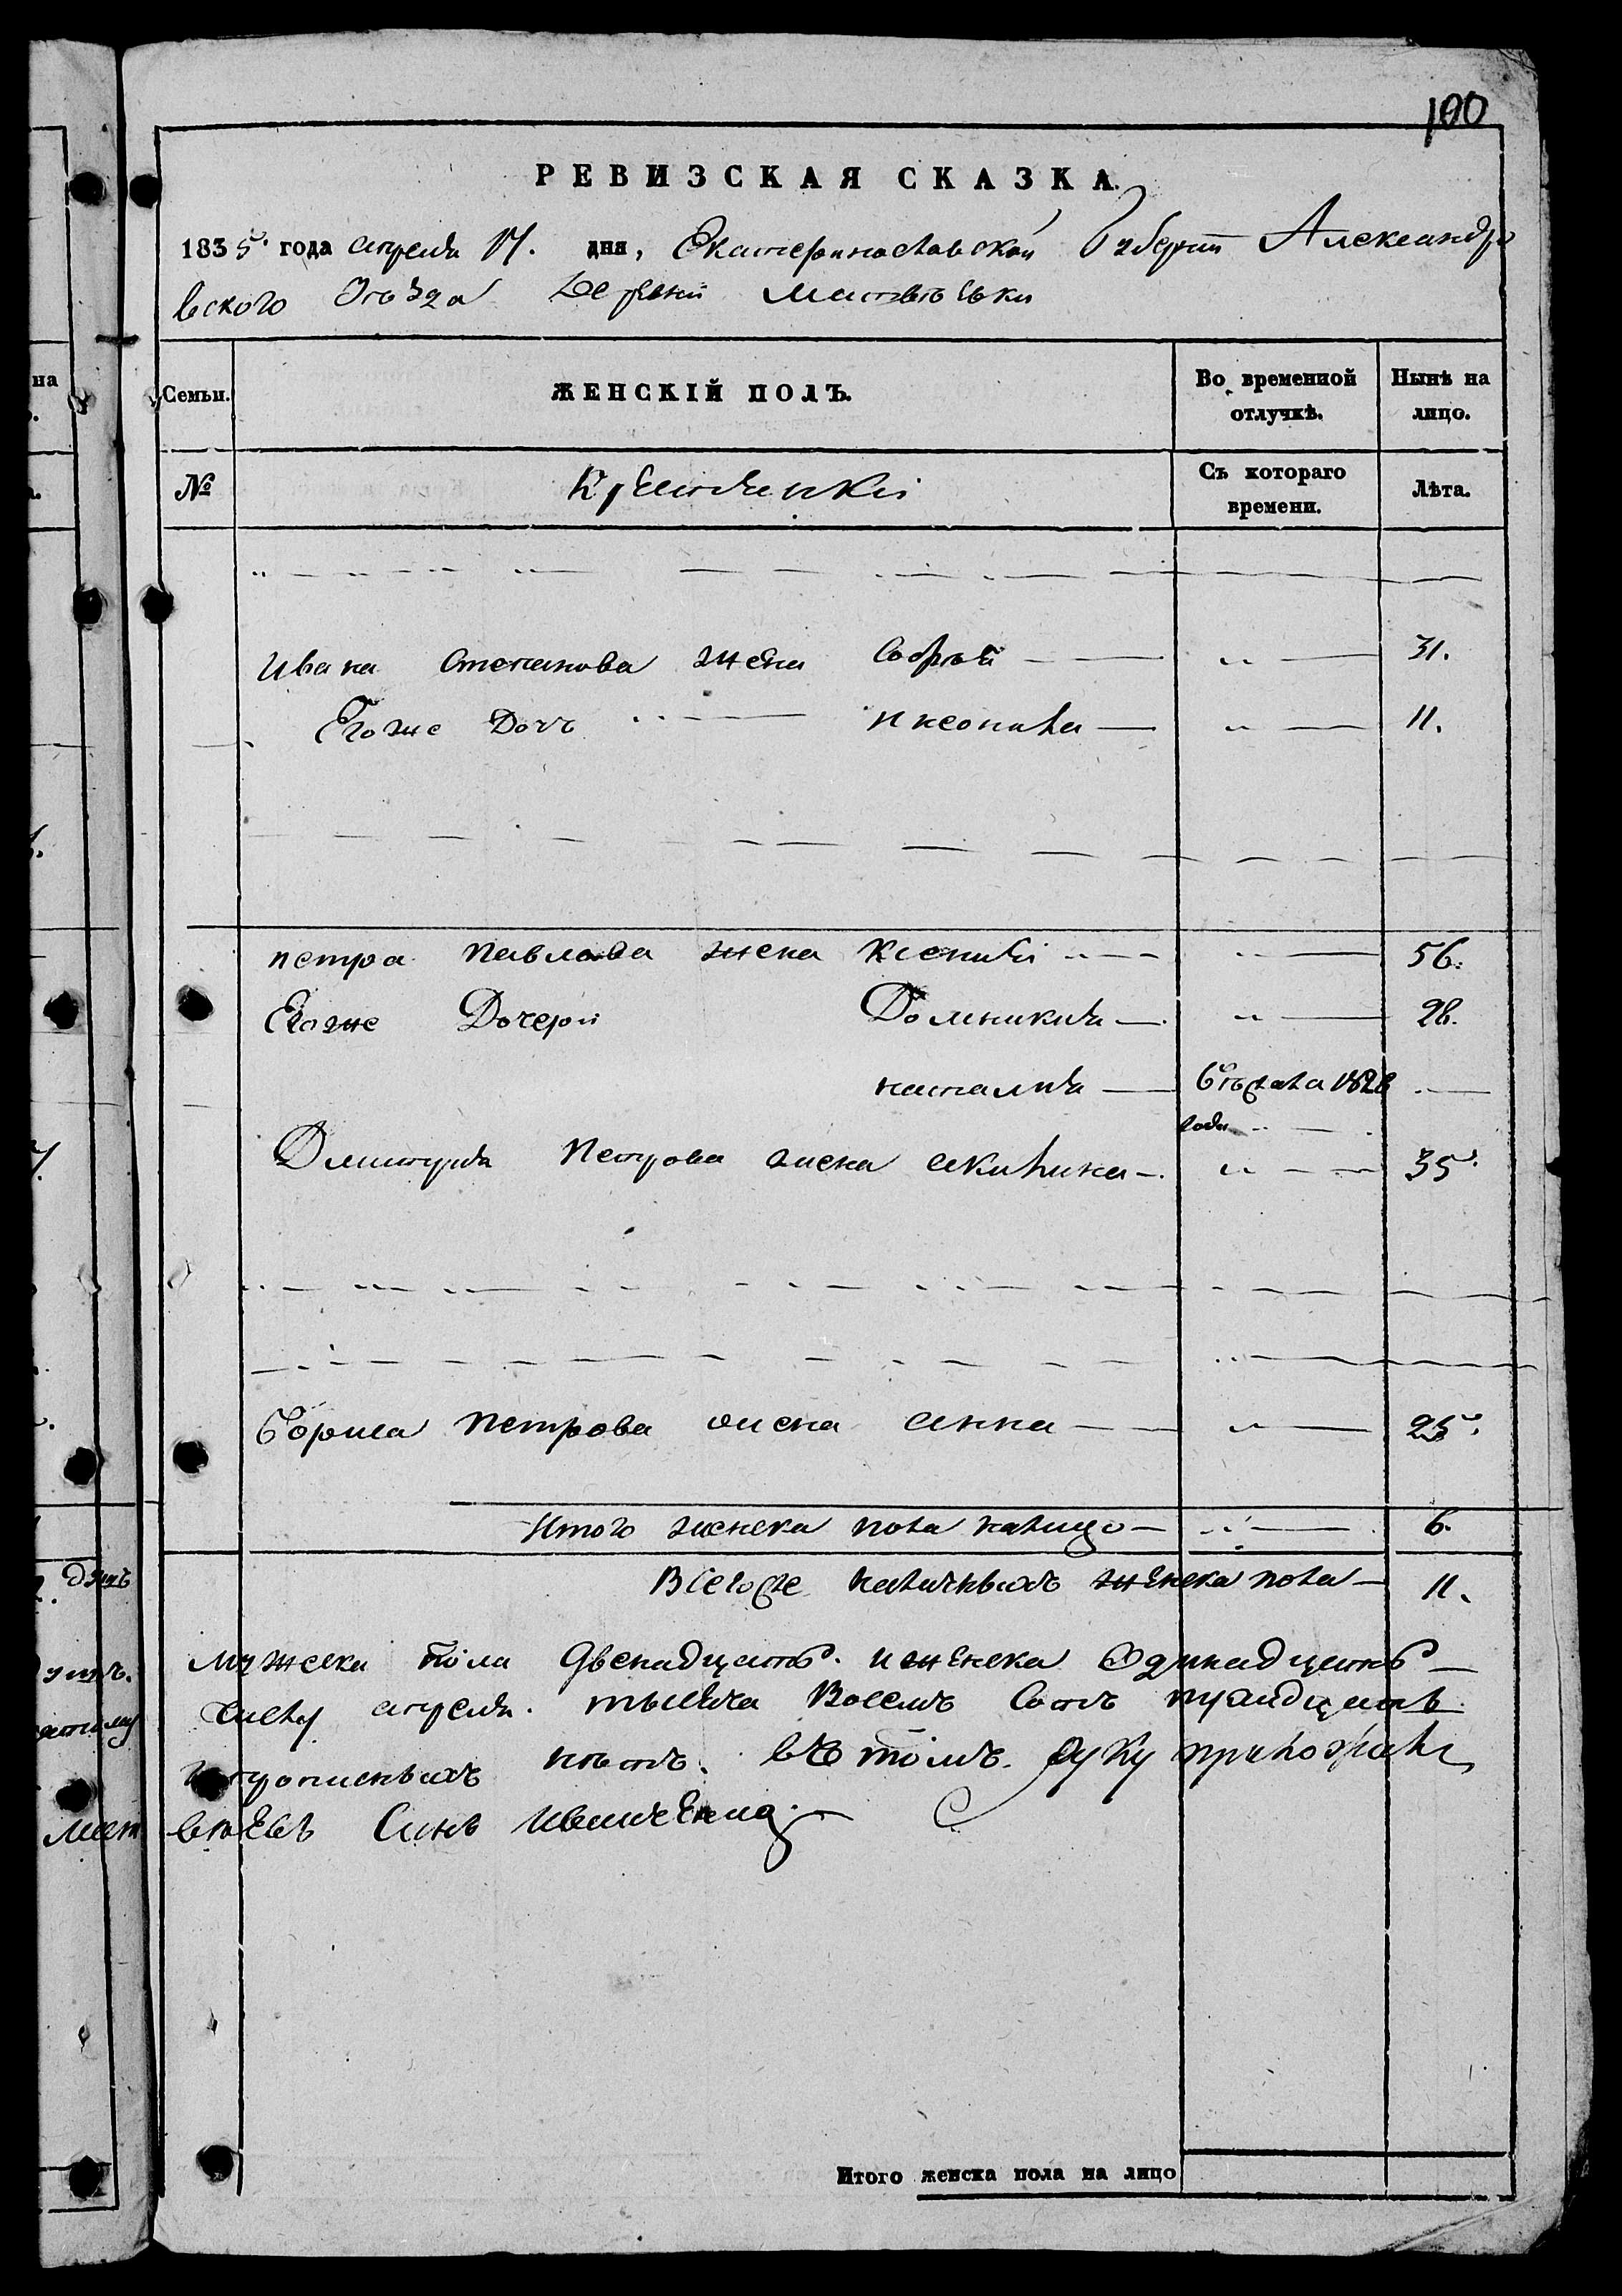 100
РЕВИЗСКАЯ СКАЗКА.
1835. года апреля 17. дня, Екатеринославской Губернии Александро
вского Уѣзда Деревни Матвѣевки
Семьи. ЖЕНСКІЙ ПОЛЪ. Во временной отлучкѣ. Нынѣ на лицо.
№ Крестьянки Съ котораго времени. Лѣта.
Ивана Степанова жена Софья 31.
Егоже Дочь 11.
петра павлова жена Ксения 56.
Егоже Дочери Домникия 28.
наталия Бѣжала 1828
года
Дмитрия Петрова жена акилина 35.
Бориса Петрова жена анна 25.
Итого женска пола налицо 6.
Всегоже наличныхъ женска пола 11.
мужеска пола двенадцать. и женска Одинадцать
числу апреля. тысяча Восемъ Сотъ тридцать
пять. въ томъ. руку приложилъ
вѣевъ Синъ Ивличенко
дня
Итого женска пола на лицо